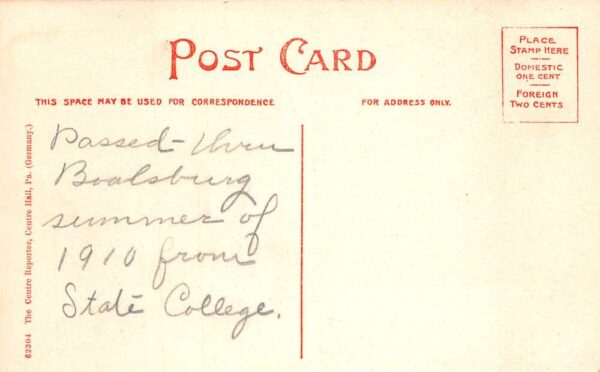 POST CARD
PLACE
STAMP HERE
DOMESTIC
ONE CENT
FOREIGN
TWO CENTS
THIS SPACE MAY BE USED FOR CORRESPONDENCE
FOR ADDRESS ONLY.
Passed-thru
Boalsburg
summer of
1910 from
State College.
62304 The Centre Reporter, Centre Hall, Pa. (Germany.)